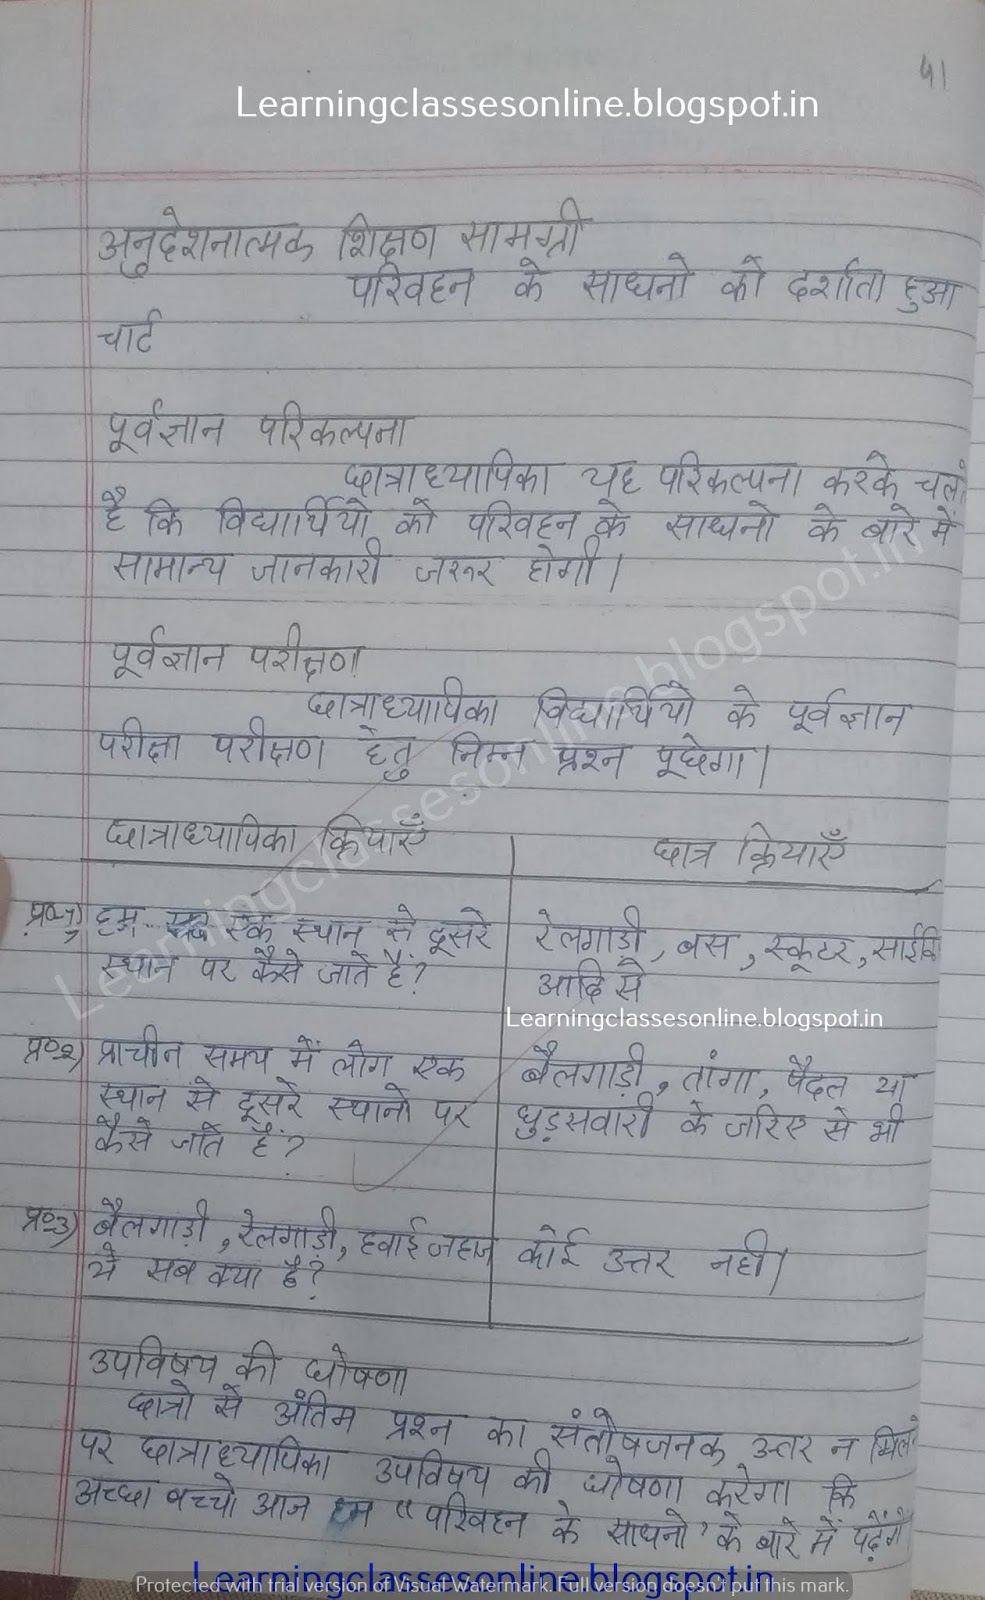 41
Learningclassesonline.blogspot.in
अनुदेशनात्मक शिक्षण सामग्री
परिवहन के साधनो को दर्शाता हुआ
चार्ट
पूर्वज्ञान परिकल्पना
छात्राध्यापिका यह परिकल्पना करके चल
है कि विद्यार्थियो को परिवहन के साधनो के बारे में
सामान्य जानकारी जरुर होगी।
पूर्वज्ञान परीक्षण
छात्राध्यापिका विद्यार्थियो के पूर्वज्ञान
परीक्षा परीक्षण हेतु निम्न प्रश्न पूछेगा।
छात्राध्यापिका क्रियाएँ
छात्र क्रियाएँ
प्र०-1) हम एक स्थान से दूसरे
स्थान पर कैसे जाते हैं?
रेलगाडी, बस, स्कूटर, साईकि
आदि से
Learningclassesonline.blogspot.in
प्र०2) प्राचीन समय में लोग एक
स्थान से दूसरे स्थानो पर
कैसे जाते हैं?
बैलगाड़ी, तांगा, पैदल या
घुड़सवारी के जरिए से भी
प्र०3) बैलगाड़ी, रेलगाड़ी, हवाई जहाज
ये सब क्या है?
कोई उत्तर नही।
उपविषय की घोषणा
छात्रो से अंतिम प्रश्न का संतोषजनक उत्तर न मिल
पर छात्राध्यापिका उपविषय की घोषणा करेगा कि
अच्छा बच्चो आज हम "परिवहन के साधनो' के बारे में पढ़ेंगे
Learningclassesonline.blogspot.in
Learningclassesonline.blogspot.in
Protected with trial version of Visual Watermark. Full version doesn't put this mark.